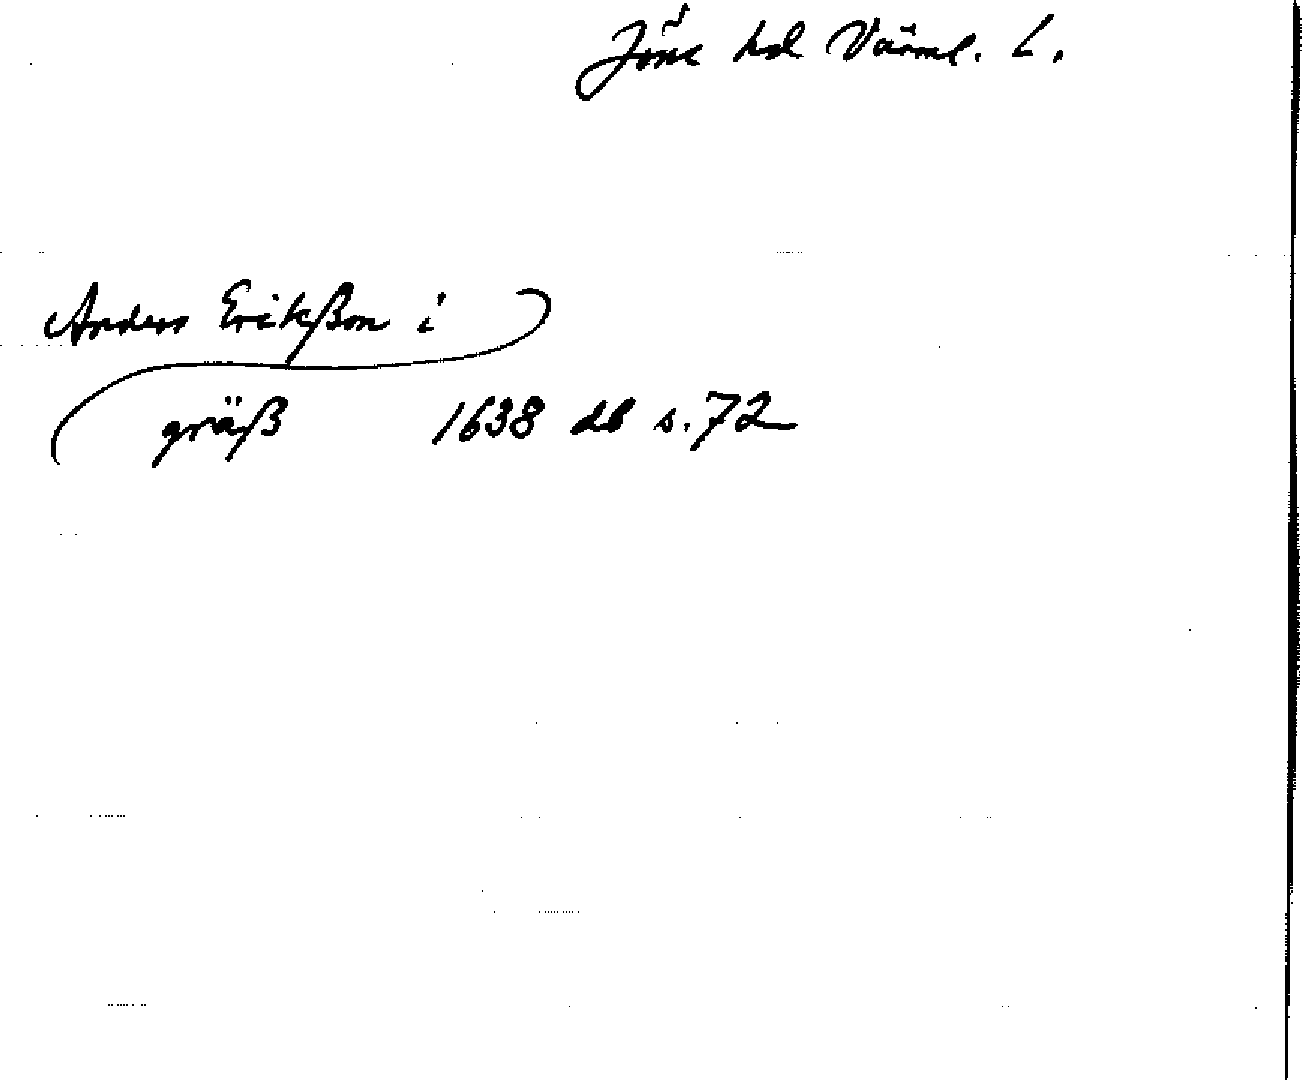 Jöse hd Värml. L.
Anders Erikßon i
gräß 1638 db s. 72